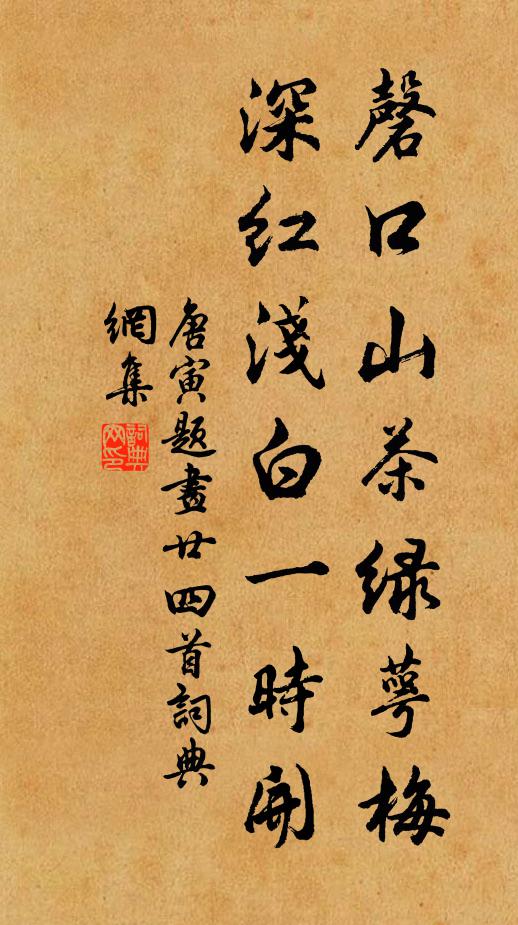 磬口山茶綠萼梅
深紅淺白一時開
唐寅題畫廿四首詞典
網集
詞典
网印